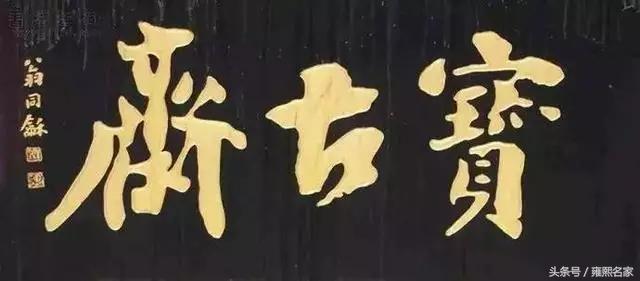 寶古齋
翁同龢
头条号／雍熙名家